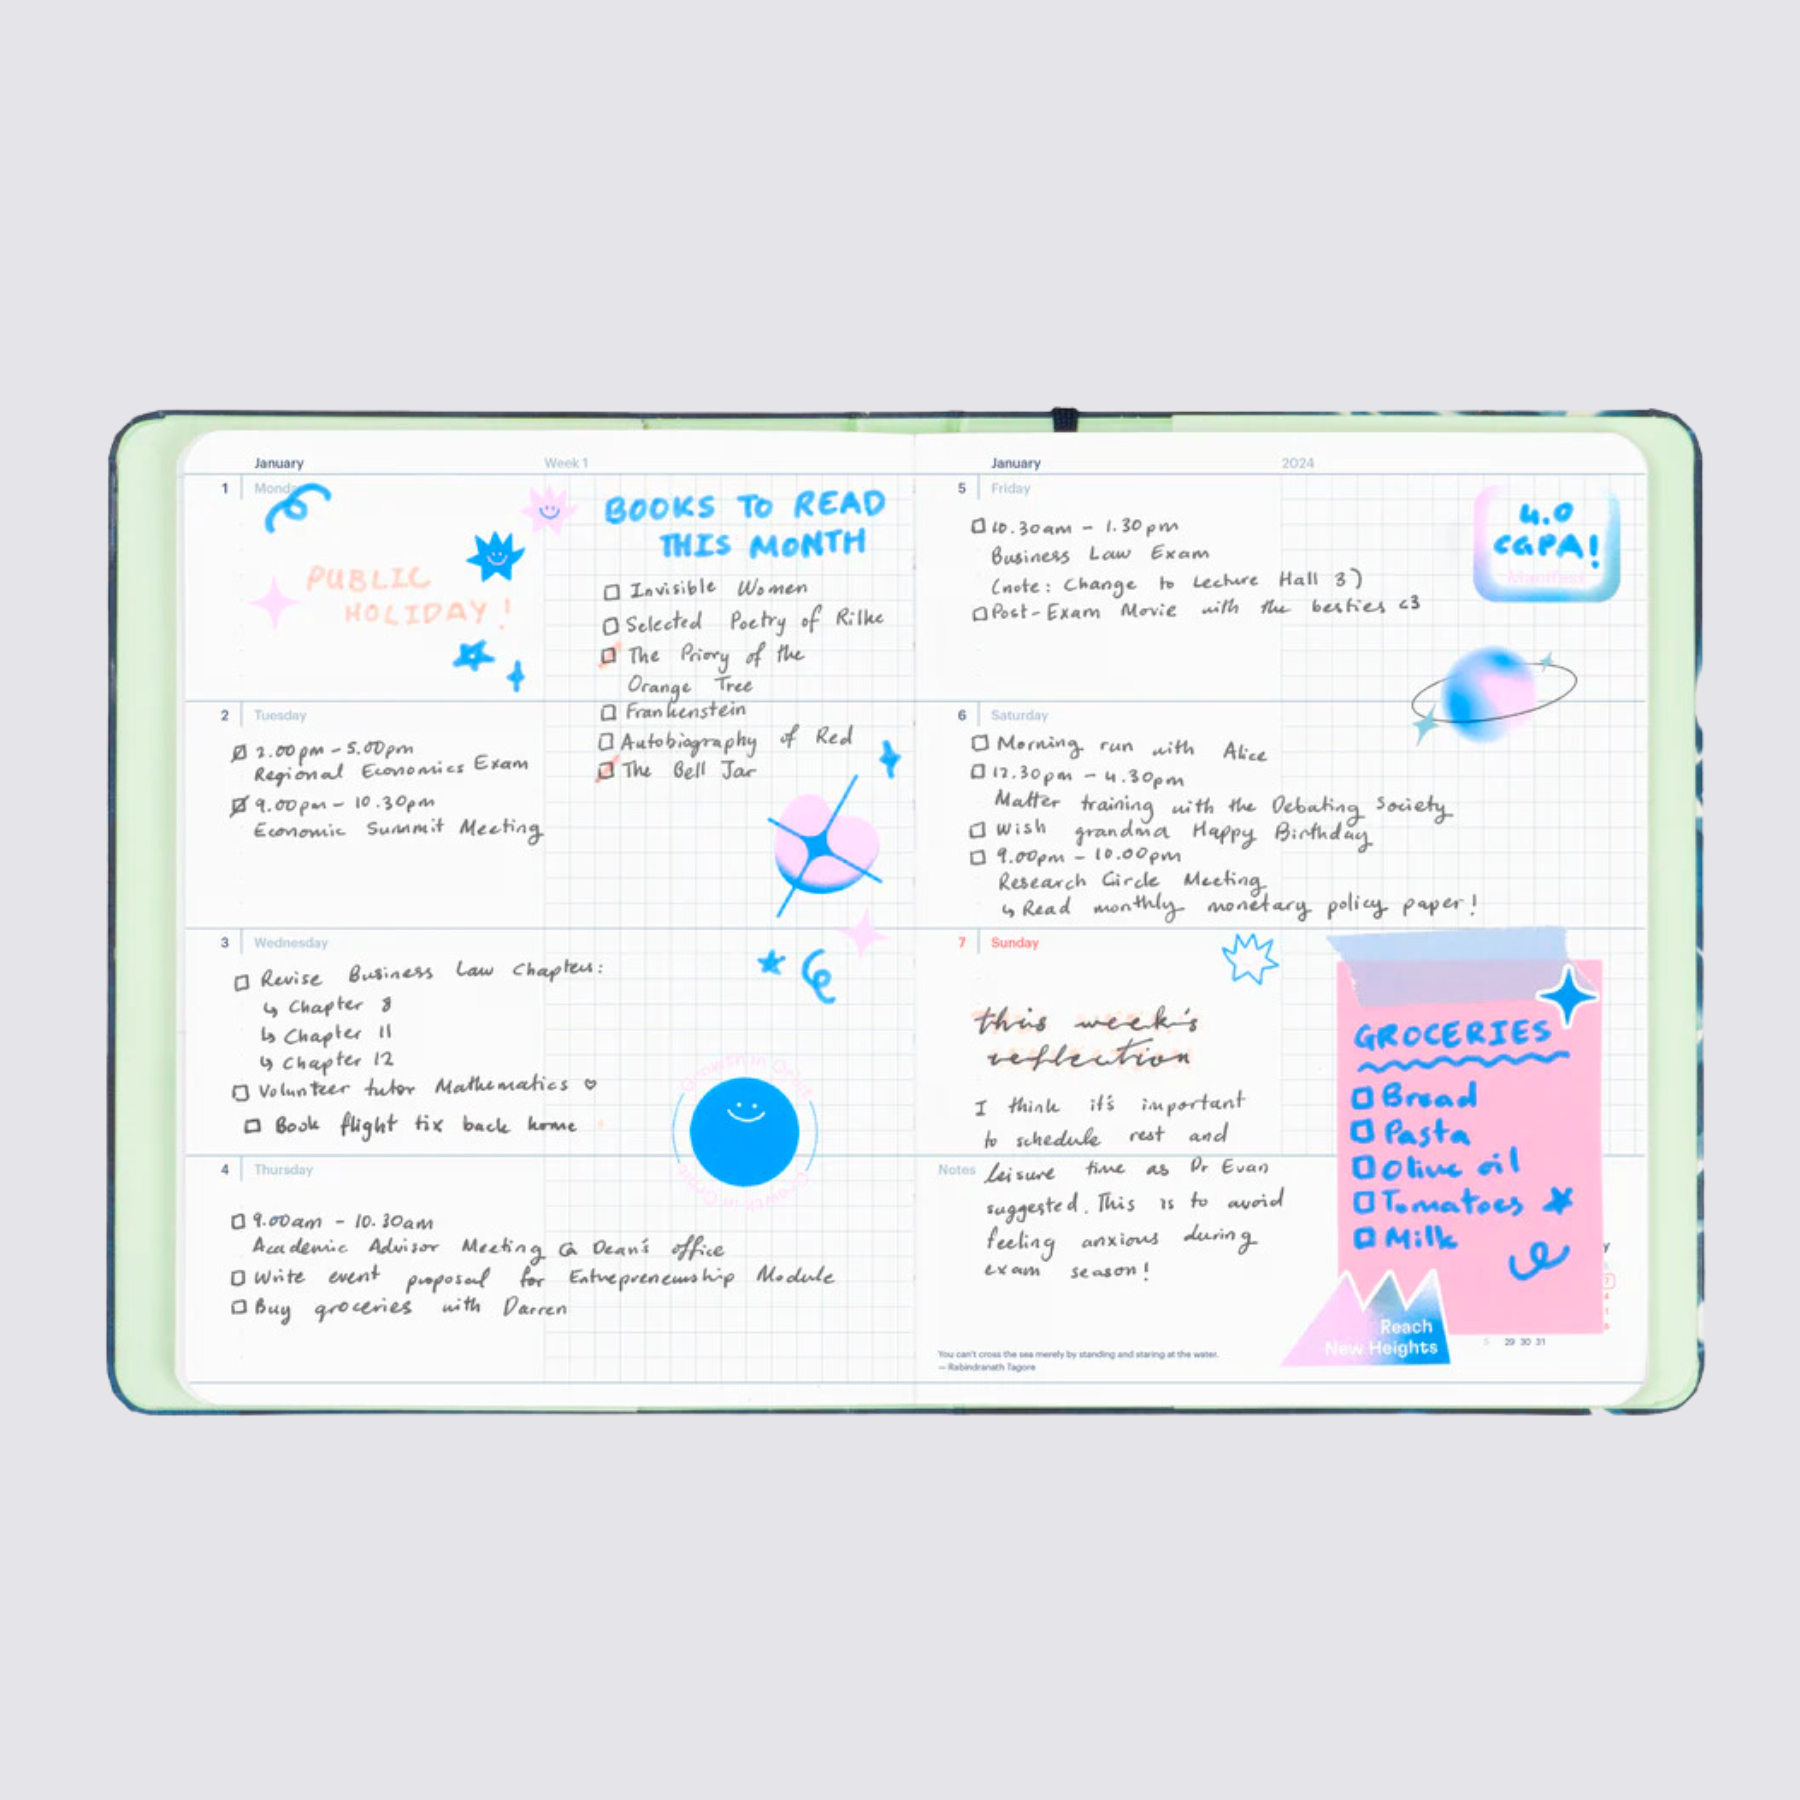 January
Week 1
1 Monday
PUBLIC
HOLIDAY!
BOOKS TO READ
THIS MONTH
Invisible Women
Selected Poetry of Rilke
The Priory of the
Orange Tree
Frankenstein
Autobiography of Red
The Bell Jar
2 Tuesday
2.00pm - 5.00pm
Regional Economics Exam
9.00pm - 10.30pm
Economic Summit Meeting
3 Wednesday
Revise Business Law Chapters:
↳ Chapter 8
↳ Chapter 11
↳ Chapter 12
Volunteer tutor Mathematics ♡
Book flight tix back home
Growth in Orbit
Growth in Orbit
4 Thursday
9.00am - 10.30am
Academic Advisor Meeting @ Dean's office
Write event proposal for Entrepreneurship Module
Buy groceries with Darren
January
2024
5 Friday
10.30am - 1.30pm
Business Law Exam
(note: Change to Lecture Hall 3)
Post-Exam Movie with the besties <3
4.0
CGPA!
Manifest
6 Saturday
Morning run with Alice
12.30pm - 4.30pm
Matter training with the Debating Society
Wish grandma Happy Birthday
9.00pm - 10.00pm
Research Circle Meeting
↳ Read monthly monetary policy paper!
7 Sunday
this week's
reflection
I think it's important
to schedule rest and
Notes
leisure time as Dr Evan
suggested. This is to avoid
feeling anxious during
exam season!
GROCERIES
Bread
Pasta
Olive oil
Tomatoes
Milk
Reach
New Heights
29 30 31
You can't cross the sea merely by standing and staring at the water.
— Rabindranath Tagore